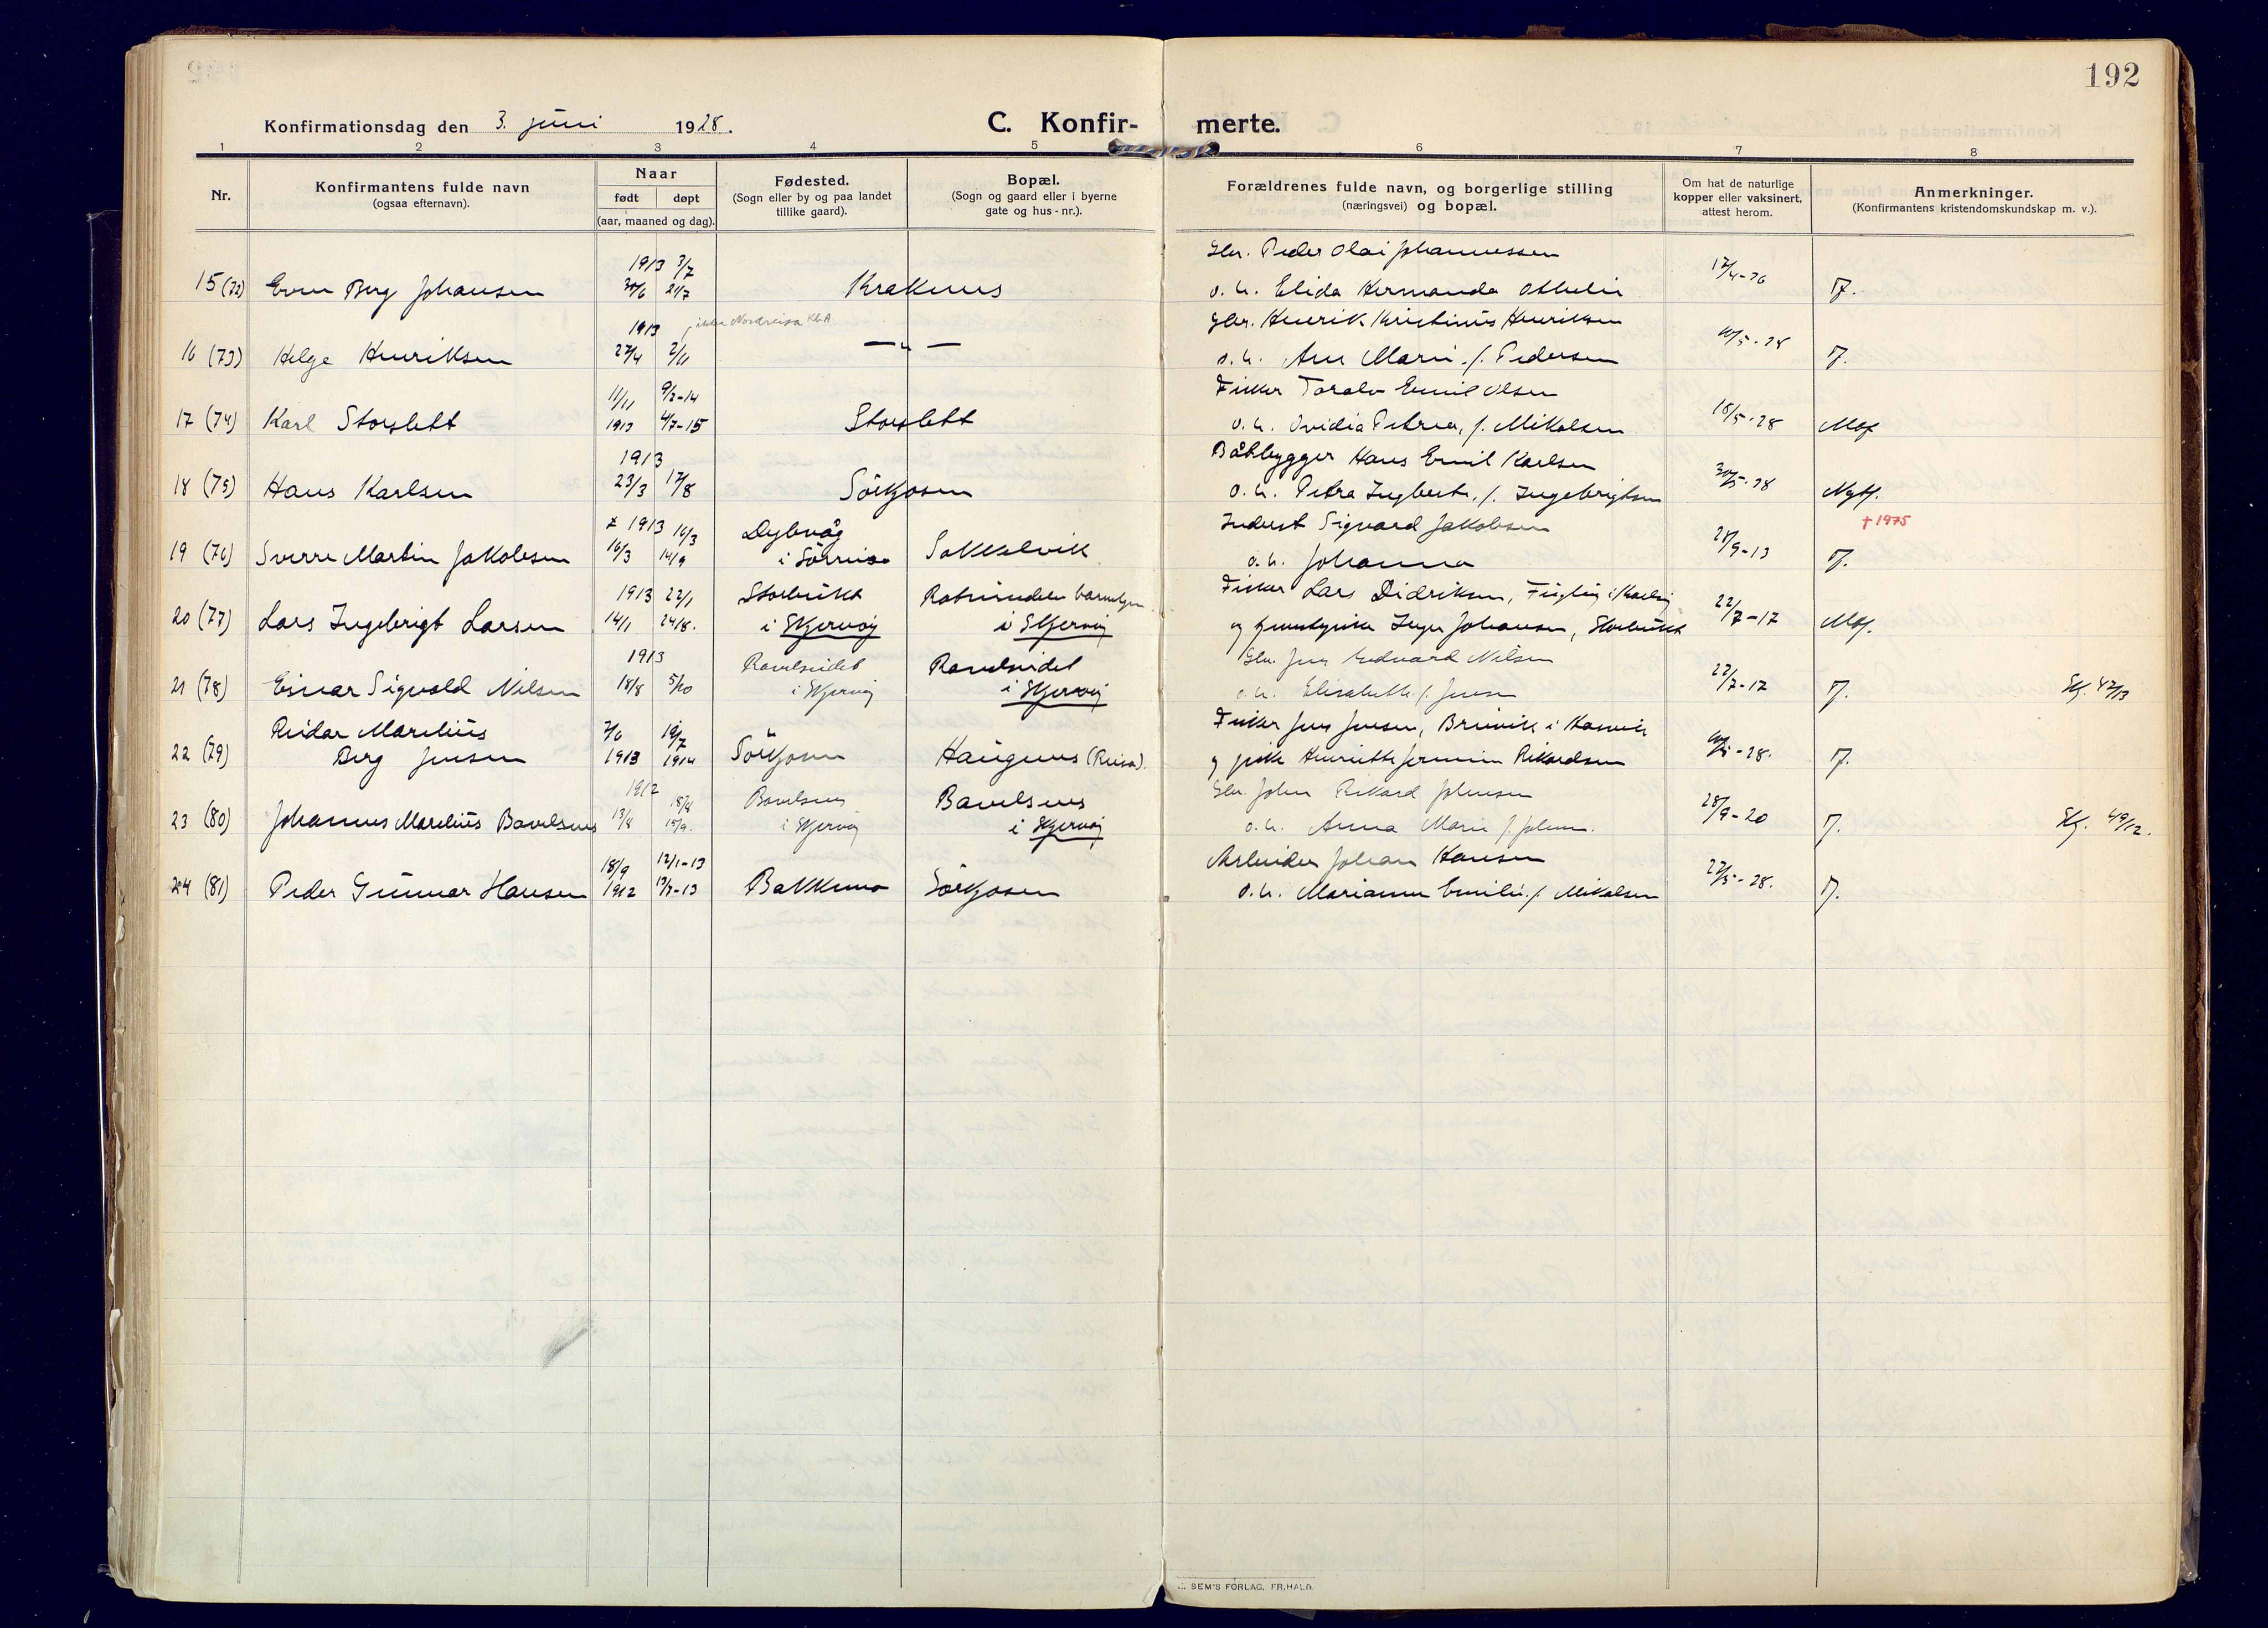 192
Konfirmationsdag den 3. juni 1928.
C. Konfir- merte.
1 2 3 4 5 6 7 8
Nr.
Konfirmantens fulde navn
(ogsaa efternavn).
Naar
født døpt
(aar, maaned og dag).
Fødested.
(Sogn eller by og paa landet
tillike gaard).
Bopæl.
(Sogn og gaard eller i byerne
gate og hus-nr.).
Forældrenes fulde navn, og borgerlige stilling
(næringsvei) og bopæl.
Om hat de naturlige
kopper eller vaksinert,
attest herom.
Anmerkninger.
(Konfirmantens kristendomskundskap m. v.).
1913 3/7 Gbr. Peder Olai Johannessen
15 (72) Berg Johansen 30/6 Kraknes o. h. Elida Hermanda 17/4-26
1913 ikke Nordreisa KbA Gbr. Henrik Kristinus Henriksen
16 (73) Helge Henriksen 27/4 2/11 — " — o. h. Ane Marie f. Pedersen
11/11 9/2-14 Fisker Toralv Emil Olsen
17 (74) Karl Storslett 1913 4/7-15 Storslett o. h. Ovidia Petrea, f. Mikalsen 15/5-28 Mgf
1913 Båtbygger Hans Emil Karlsen
18 (75) Hans Karlsen 23/3 17/8 Sörkjosen o. h. Petra f. Ingebrigtsen 30/5-28
x 1913 16/3 Dybvåg Indust Sigvard Jakobsen † 1975
19 (76) Sverre Martin Jakobsen 16/3 14/9 i Sörreisa Sokkelvik o. h. Johanna 28/9-13
1913 22/1 Storbukt Rotsundelv Fisker Lars Didriksen,
20 (77) Lars Ingebrigt Larsen 14/1 24/8. i Skjervøy i Skjervøy Johansen, Storbukt 22/7-17 Mgf.
1913 Ravelseidet Ravelseidet Gbr. Jens Edvard Nilsen
21 (78) Einar Sigvald Nilsen 18/8 5/10 i Skjervøy i Skjervøy o. h. Elisabeth f. Jensen 22/7-17 Skj. 42/13
Reidar Marelius 7/6 19/7 Fisker Jens Jensen,
22 (79) Berg Jensen 1913 1914 Sörkjosen Haugnes (Reisa). Rikardsen
1912 18/8 Bavelsnes Bavelsnes Gbr. John Rikard Johnsen
23 (80) Johannes Marelius Bavelsnes 13/8 15/9. i Skjervøy i Skjervøy o. h. Anna Marie f. Johns. 28/9-20 Skj. 49/12.
18/9 12/1-13 Arbeider Johan Hansen
24 (81) Peder Gunnar Hansen 1912 13/7-13 Bakkemo Sörkjosen o. h. Marianne Emilie f. Mikalsen 22/5-28.
SEM'S FORLAG, FR.HALD.